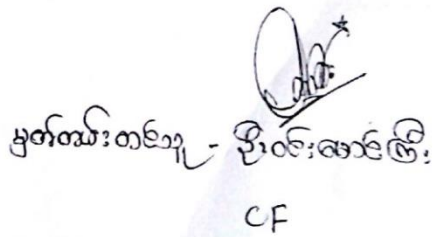 မှတ်တမ်းတင်သူ - ဦးဝင်းမောင်ကြီး
CF